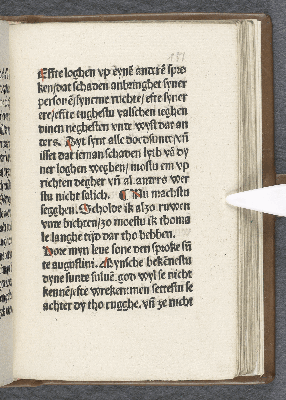 151
Effte loghen vp eynē anderē spre
ken/dat schaden anbringhet syner
personē/syneme ruchte/efte syner
ere/efte tughestu valschen ieghen
dinen neghesten vnte wyst dat an
ders. Dyt synt alle doetsunte/vn̄
isset dat ieman schaden lydt vā dy
ner loghen weghen/mostu em vp
richten degher vn̄ al. anders wer
stu nicht salich. Nu machstu
segghen. Scholde ik alzo ruwen
vnte bichten/zo moestu ik thoma
le langhe tijd dar tho hebben.
Hore myn leue sone den sproke sū
te augustini. Wynsche bekēnestu
dyne sunte suluē. god wyl se nicht
kennē/efte wreken:men settestu se
achter dy tho rugghe. vn̄ ze nicht